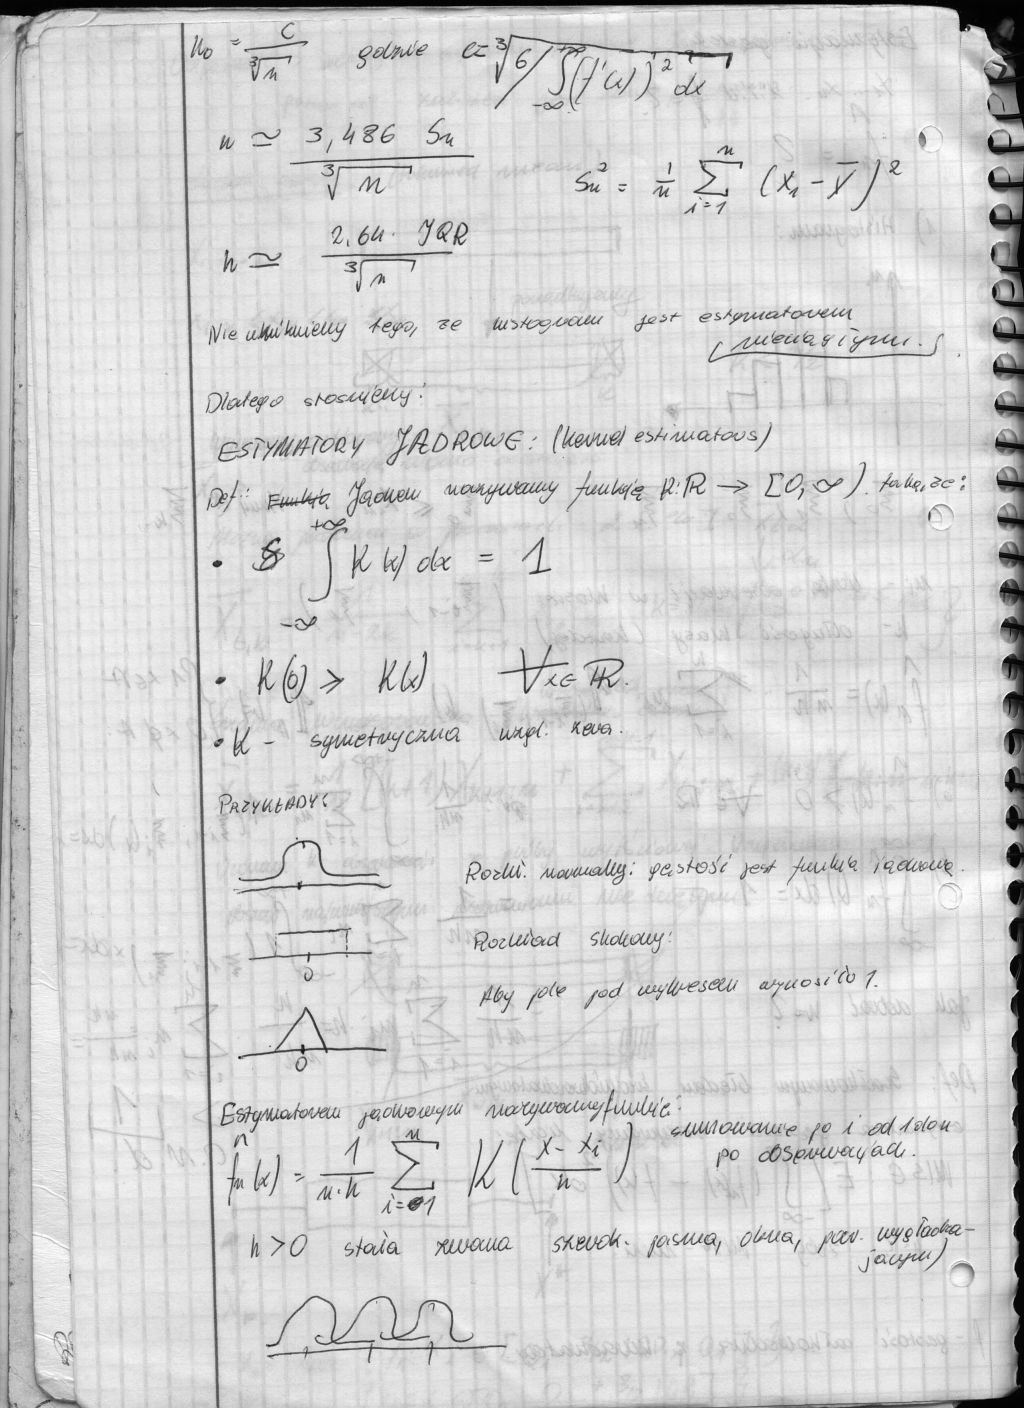 h₀ = C / ∛n gdzie c = ∛(6 / ∫_{-∞}^{+∞} (f'(x))² dx)
h ≃ 3,486 Sn / ∛n
Sn² = 1/n Σ_{i=1}^{n} (X₁ - X̄)²
h ≃ 2,64 · IQR / ∛n
Nie unikniemy tego, że histogram jest estymatorem
nieciągłym.
Dlatego stosujemy:
ESTYMATORY JĄDROWE: (kernel estimators)
Def: Funkcją Jądrem nazywamy funkcję K: ℝ → [0, ∞). taką, że:
• ∫_{-∞}^{+∞} K(x) dx = 1
• K(0) ≥ K(x) ∀x∈ℝ.
• K - symetryczna wzgl. zera.
PRZYKŁADY:
Rozkł. normalny: gęstość jest funkcją jądrową.
Rozkład skokowy:
0
Aby pole pod wykresem wynosiło 1.
0
Estymatorem jądrowym nazywamy funkcję:
f̂n(x) = 1/(n·h) Σ_{i=1}^{n} K((x - xi)/h) sumowanie po i od 1 do n
po obserwacjach.
h > 0 stała zwana szerok. pasma, okna, par. wygładza-
jącym)